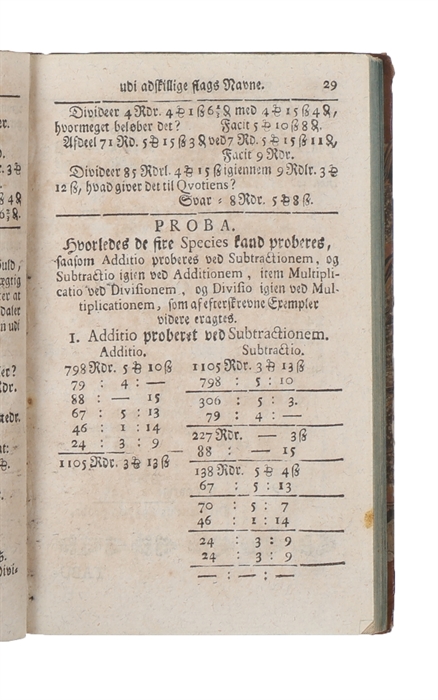 udi adskillige slags Navne. 29
Divideer 4 Rdr. 4 ₻ 1 ß 6 ₰ med 4 ₻ 15 ß 4 ₰,
hvormeget beløber det? Facit 5 ₻ 10 ß 8 ₰.
Afdeel 71 Rd. 5 ₻ 15 ß 3 ₰ ved 7 Rd. 5 ₻ 15 ß 11 ₰,
Facit 9 Rdr.
Divideer 85 Rdrl. 4 ₻ 15 ß igiennem 9 Rdlr. 3 ₻
12 ß, hvad giver det til Qvotiens?
Svar = 8 Rdr. 5 ₻ 8 ß.
PROBA.
Hvorledes de fire Species kand proberes,
saasom Additio proberes ved Subtractionem, og
Subtractio igien ved Additionem, item Multipli-
catio ved Divisionem, og Divisio igien ved Mul-
tiplicationem, som af efterskrevne Exempler
videre eragtes.
1. Additio proberet ved Subtractionem.
Additio. Subtractio.
798 Rdr. 5 ₻ 10 ß 1105 Rdr. 3 ₻ 13 ß
79 : 4 : — 798 : 5 : 10
88 : — 15 306 : 5 : 3.
67 : 5 : 13 79 : 4 : —
46 : 1 : 14 227 Rdr. — 3 ß
24 : 3 : 9 88 : — 15
1105 Rdr. 3 ₻ 13 ß 138 Rdr. 5 ₻ 4 ß
67 : 5 : 13
70 : 5 : 7
46 : 1 : 14
24 : 3 : 9
24 : 3 : 9
— : — : —